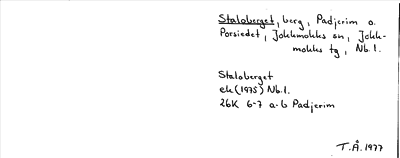 Staloberget, berg, Padjerim o.
Porsiedet, Jokkmokks sn, Jokk-
mokks tg, Nb.l.
Staloberget
ek (1975) Nb.l.
26K 6-7 a-b Padjerim
T.Å. 1977